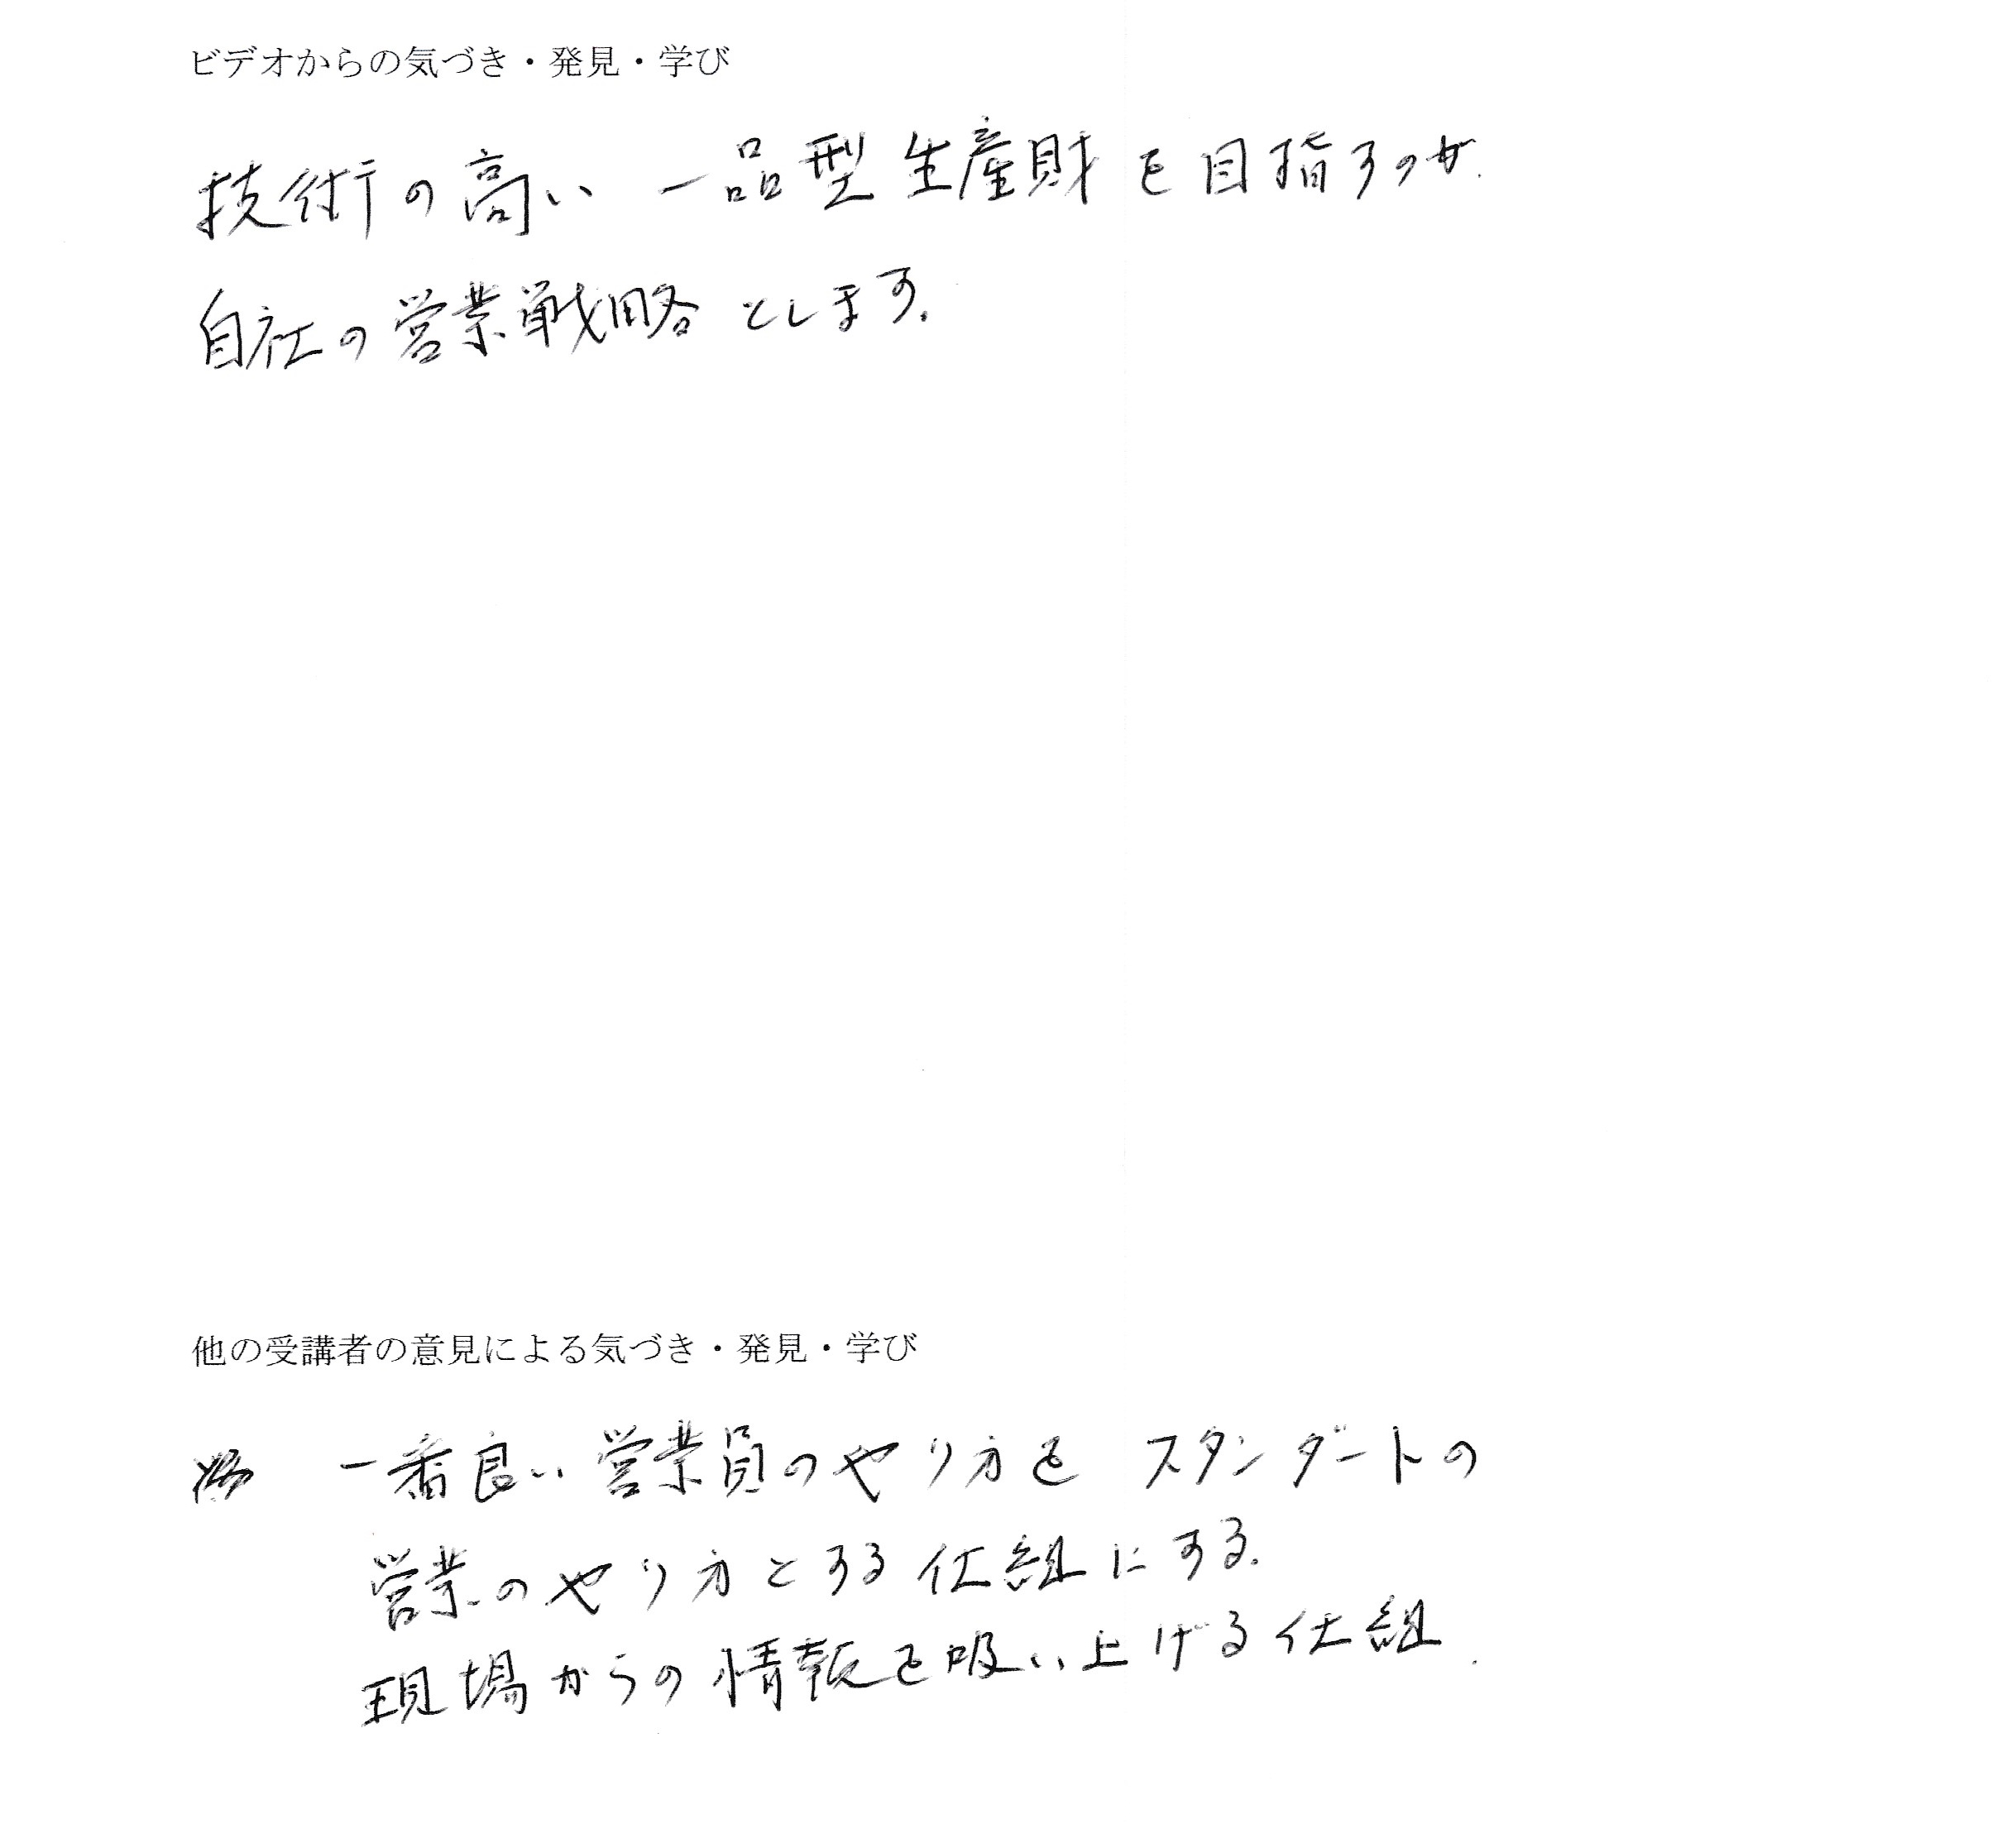 ビデオからの気づき・発見・学び
技術の高い 一品型生産財を目指すのが
自社の営業戦略とします。
他の受講者の意見による気づき・発見・学び
一番良い営業員のやり方を スタンダートの
営業のやり方とする仕組にする。
現場からの情報を吸い上げる仕組.